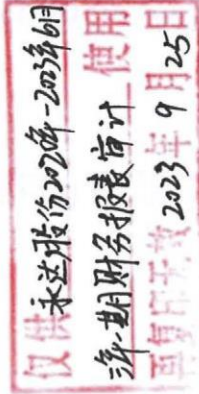 仅供永达股份2020年-2023年6月
三年一期财务报表审计使用
再复印无效 2023年9月25日